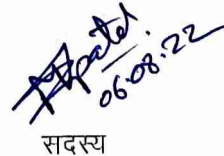 06.08.22
सदस्य